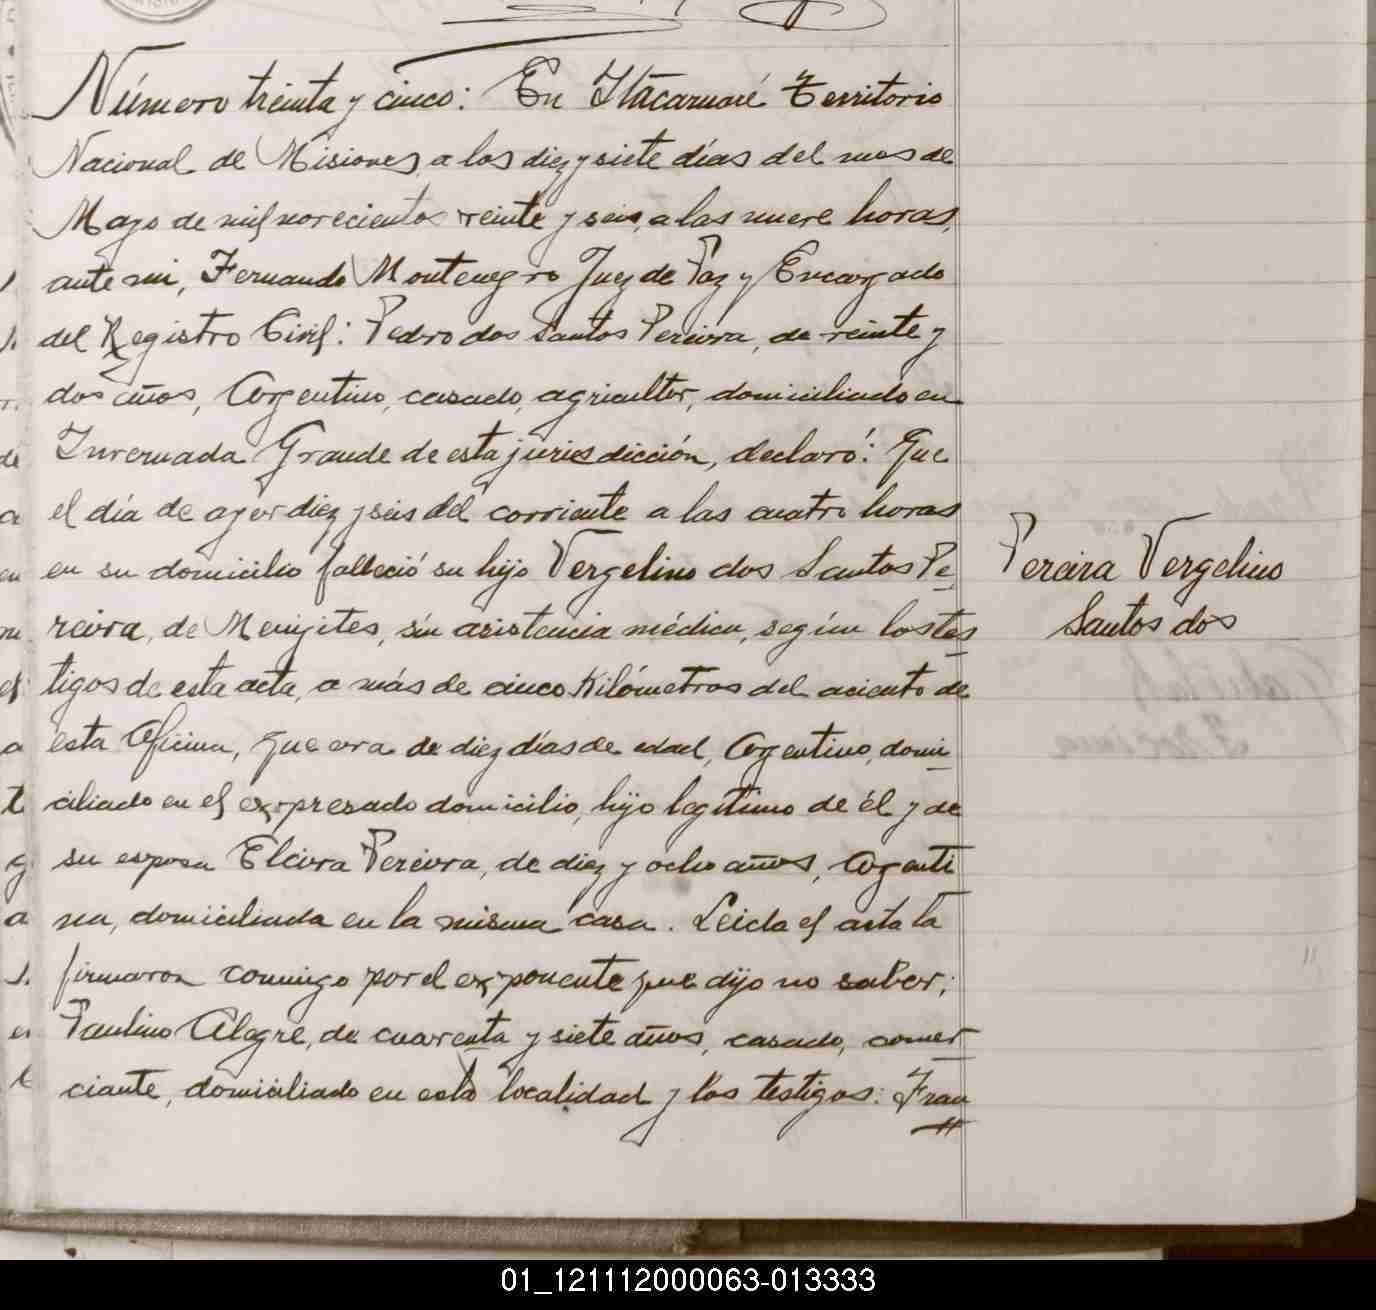 Número treinta y cinco: En Itacaruaré Territorio
Nacional de Misiones, a los diez y siete días del mes de
Mayo de mil novecientos veinte y seis, a las nueve horas,
ante mi, Fernando Montenegro Juez de Paz y Encargado
del Registro Civil: Pedro dos Santos Pereira, de veinte y
dos años, Argentino, casado, agricultor, domiciliado en
Invernada Grande de esta jurisdicción, declaró: Que
el día de ayer diez y seis del corriente a las cuatro horas
en su domicilio falleció su hijo Vergelino dos Santos Pe-
reira, de Menijites, sin asistencia médica, según los tes
tigos de esta acta, a más de cinco Kilómetros del aciento de
esta Oficina, que era de diez días de edad, Argentino, domi
ciliado en el expresado domicilio, hijo legítimo de él y de
su esposa Elvira Pereira, de diez y ocho años, Argenti
na, domiciliada en la misma casa. Leida el acta la
firmaron conmigo por el exponente que dijo no saber;
Paulino Alegre, de cuarenta y siete años, casado, comer
ciante, domiciliado en esta localidad y los testigos: Fran
Pereira Vergelino
Santos dos
01_121112000063-013333